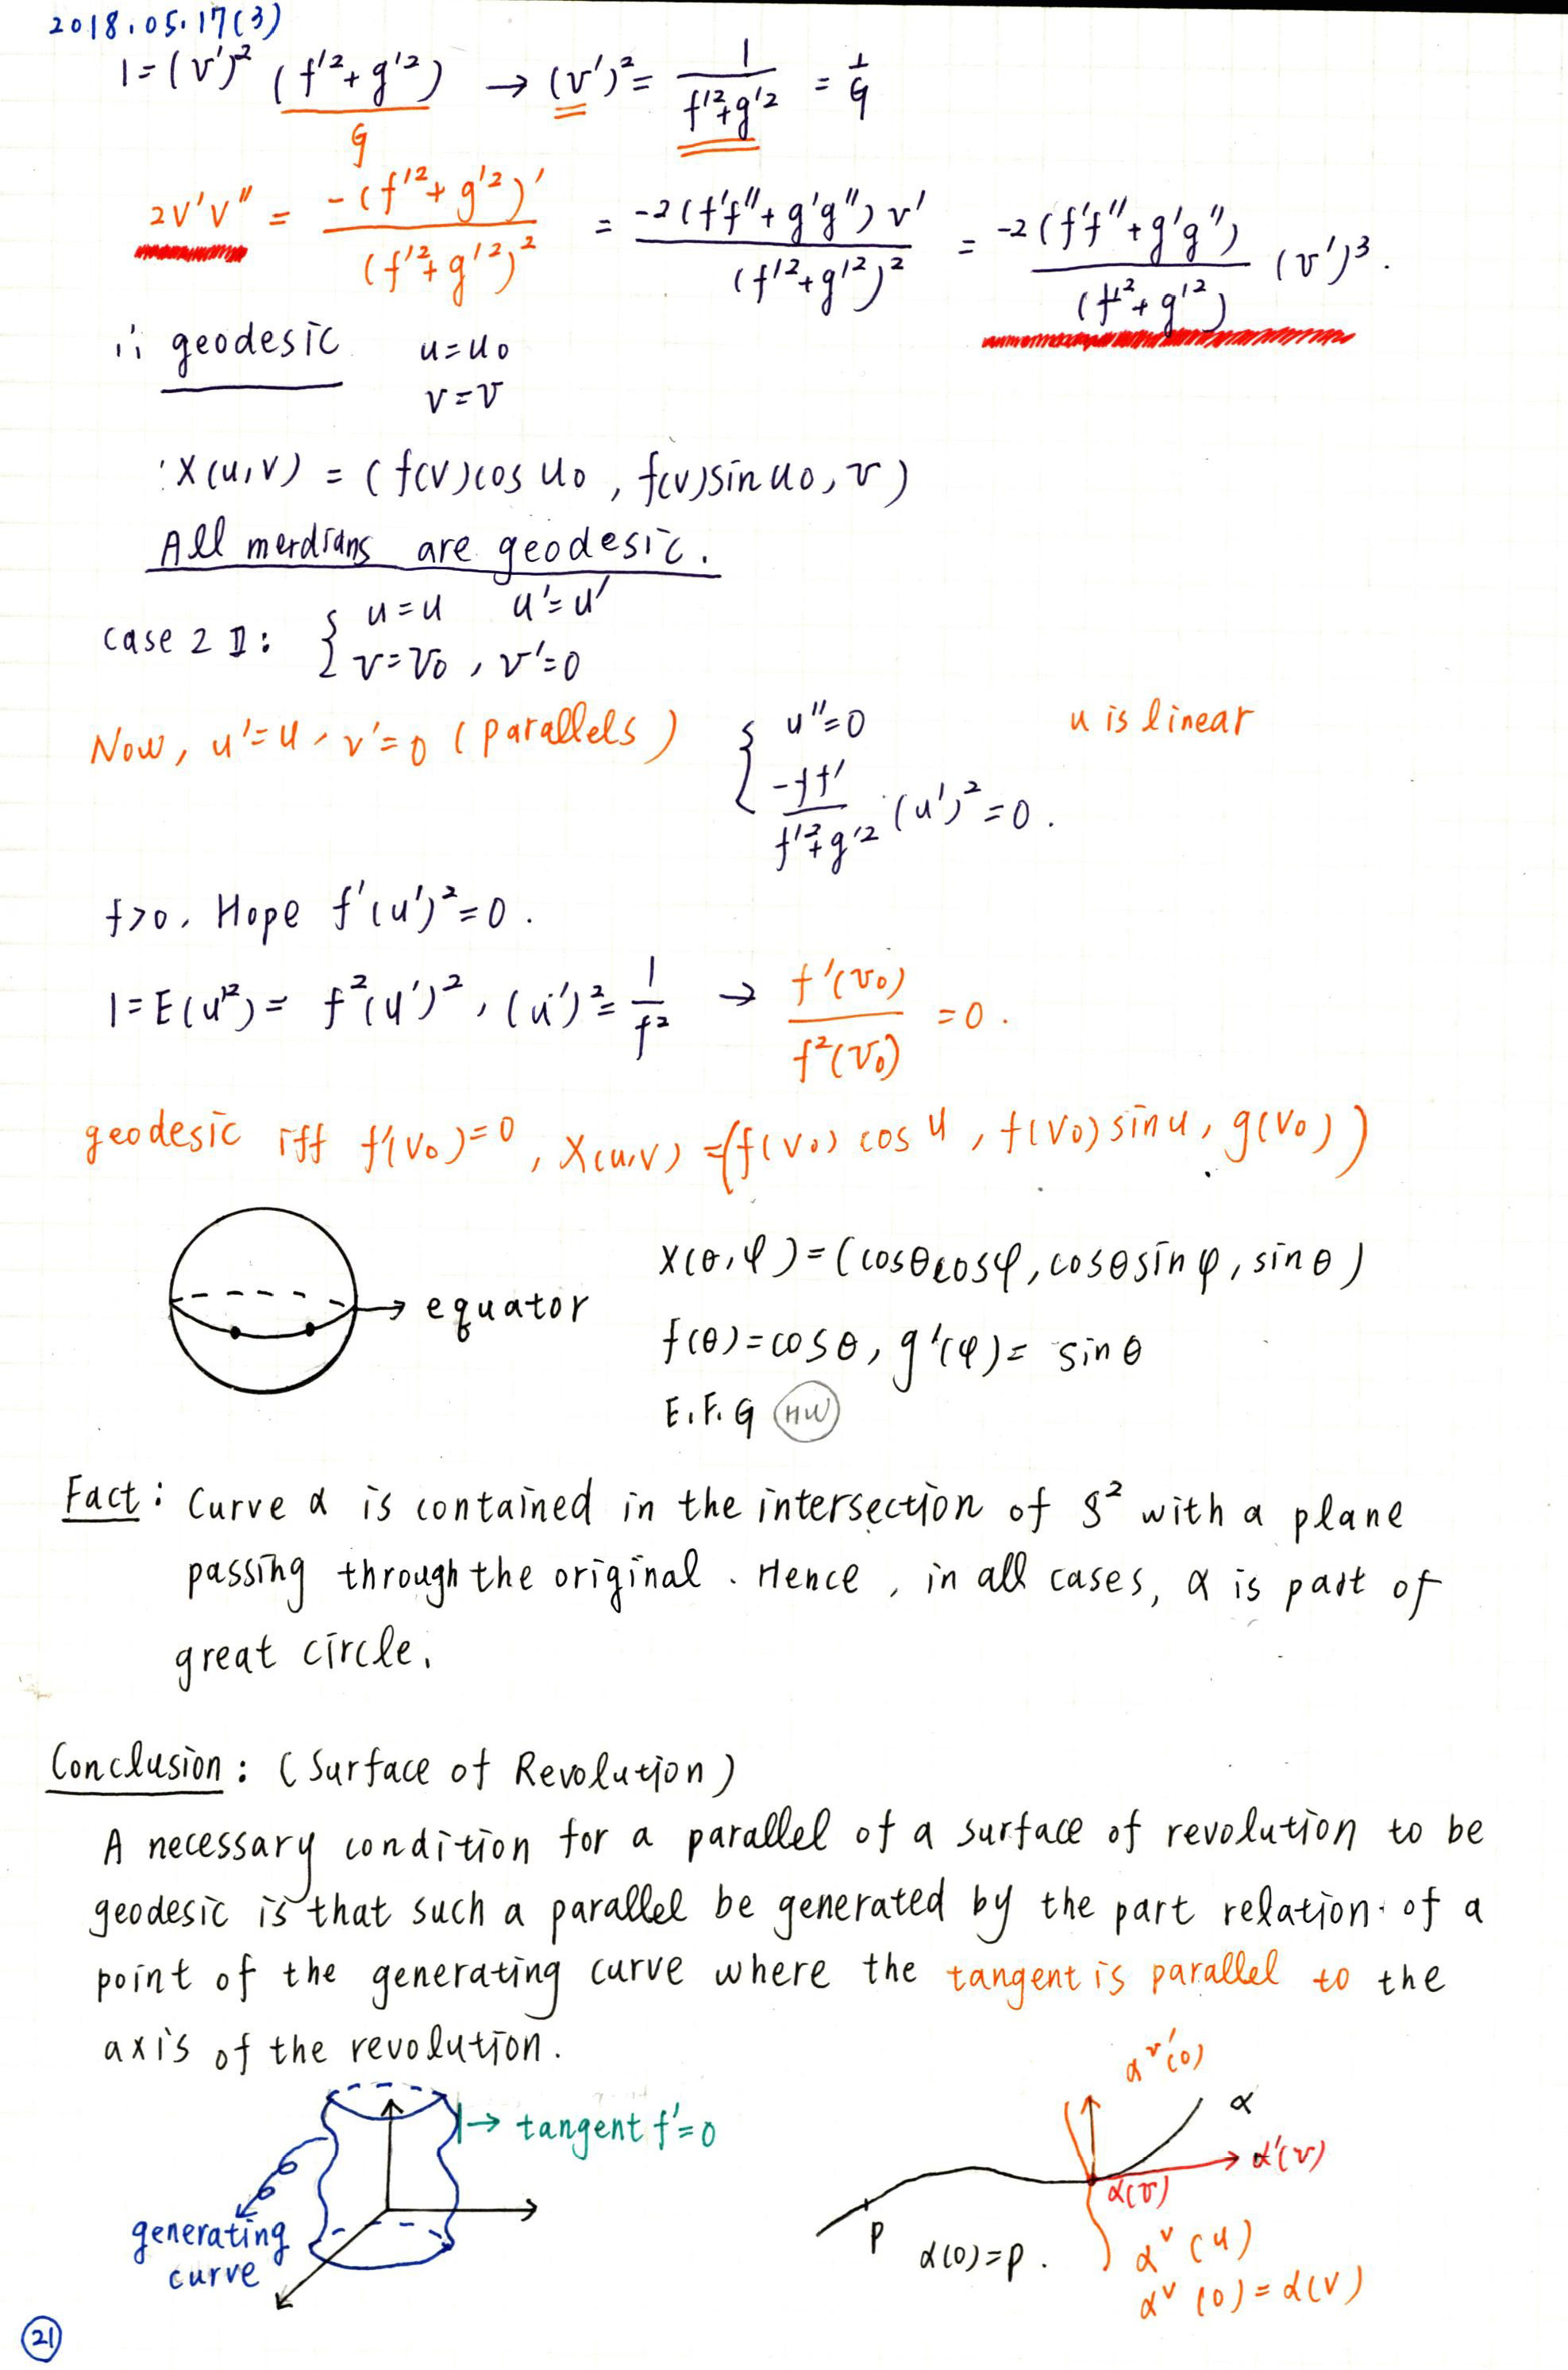 2018.05.17(3)
1=(v')² (f'²+g'²) → (v')² = 1/(f'²+g'²) = 1/G
G
2v'v" = -(f'²+g'²)'/(f'²+g'²)² = -2(f'f"+g'g")v'/(f'²+g'²)² = -2(f'f"+g'g")/(f'²+g'²) (v')³.
∴ geodesic u=u₀
v=v
: X(u,v) = (f(v)cos u₀, f(v)sin u₀, v)
All merdians are geodesic.
case 2 II: { u=u u'=u'
v=v₀, v'=0
Now, u'=u, v'=0 (parallels) { u"=0 u is linear
-ff'/(f'²+g'²) · (u')²=0.
f>0, Hope f'(u')²=0.
1=E(u'²)= f²(u')², (u')²= 1/f² → f'(v₀)/f²(v₀) =0.
geodesic iff f'(v₀)=0, X(u,v) =(f(v₀) cos u, f(v₀) sin u, g(v₀))
X(θ,φ)=(cosθcosφ, cosθsinφ, sinθ)
→ equator
f(θ)=cosθ, g'(φ)= sinθ
E.F.G HW
Fact: Curve α is contained in the intersection of S² with a plane
passing through the original. Hence, in all cases, α is part of
great circle.
Conclusion: (Surface of Revolution)
A necessary condition for a parallel of a surface of revolution to be
geodesic is that such a parallel be generated by the part relation of a
point of the generating curve where the tangent is parallel to the
axis of the revolution.
αᵛ'(0)
α
→ tangent f'=0
α'(v)
α(v)
generating
curve
p α(0)=p.
αᵛ(u)
αᵛ(0)=α(v)
21